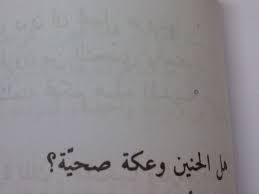 هل الحنين وعكة صحيّة؟